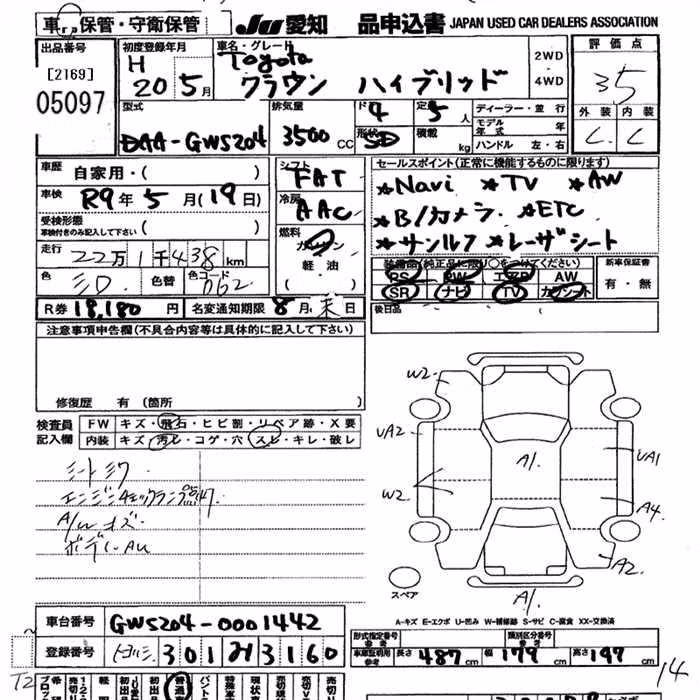 車 保管・守衛保管
JU愛知 品申込書 JAPAN USED CAR DEALERS ASSOCIATION
出品番号
[2169]
05097
初度登録年月
H 20 5月
車名・グレード
Toyota
クラウン ハイブリッド
2WD
4WD
評価点
3.5
外装 内装
C C
型式
DAA-GWS204
排気量
3500CC
ド 4
定 5人
形状 SD
積載 kg
ディーラー・並行
モデル年式 年
ハンドル 左・右
車歴
自家用・( )
車検
R9年5月(19日)
受検形態
車検付きのみ記入して下さい ( )
走行
22万1千438km
色 シロ 色替 色コード 062
R券 18,180円 名変通知期限 8月末日
シフト
FAT
冷房
AAC
燃料
ガソリン
軽油
( ・ )
セールスポイント(正常に機能するものに限ります)
*Navi *TV *AW
*B/カメラ *ETC
*サンルーフ *レーザシート
装備品(純正品に限り○をつけてください)
PS PW エアB AW
SR ナビ TV カワシート
新車保証書
有・無
後日品
注意事項申告欄(不具合内容等は具体的に記入して下さい)
修復歴 有(箇所 )
検査員
記入欄
FW キズ・飛石・ヒビ割・リペア跡・X要
内装 キズ・汚レ・コゲ・穴・スレ・キレ・破レ
シートシワ
エンジンチェックランプ点灯
A/Wキズ
ボデーAU
W2
UA2
W2
A1
UA1
A4
A2
A1
スペア
A-キズ E-エクボ U-凹み W-補修跡 S-サビ C-腐食 XX-交換済
車台番号
GWS204-0001442
登録番号
301 3160
形式指定番号
参考
類別区分番号
参考
車庫証明用
参考
長さ 487cm 幅 179cm 高さ 147cm
14
T2
普通車